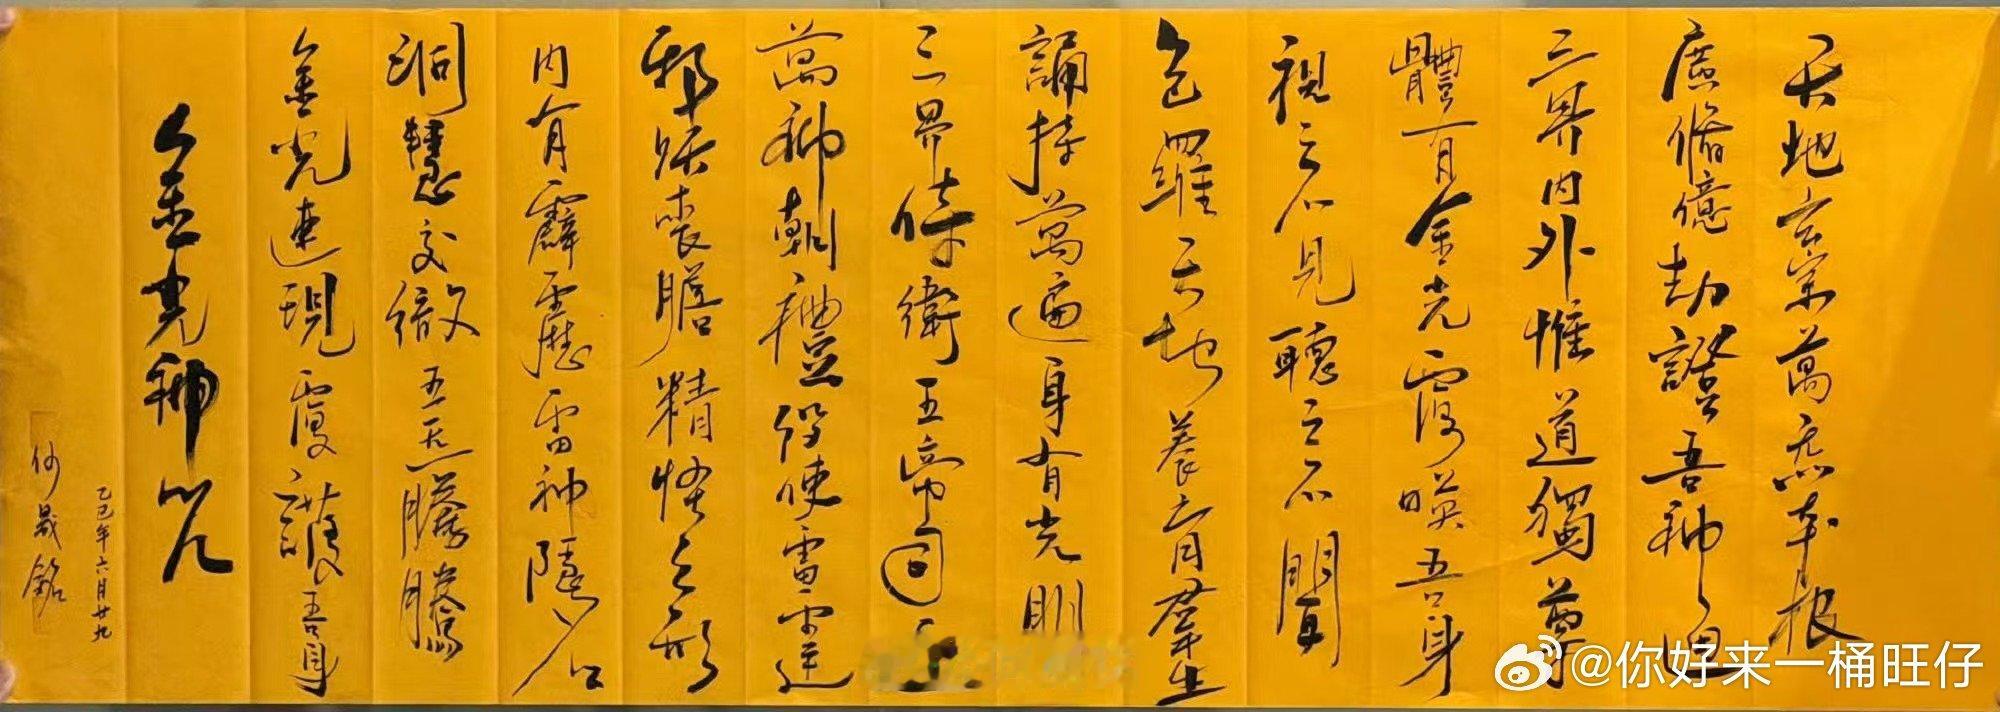 天地玄宗萬炁本根
廣脩億劫證吾神通
三界内外惟道獨尊
體有金光覆暎吾身
視之不見聽之不聞
包羅天地養育羣生
誦持萬遍身有光明
三界侍衛五帝司
萬神朝禮役使雷霆
邪妖喪膽精怪亡形
内有霹靂雷神隱名
洞慧交徹五炁騰騰
金光速現覆護吾身
金光神咒
乙巳年六月廿九
何晟銘
@你好来一桶旺仔